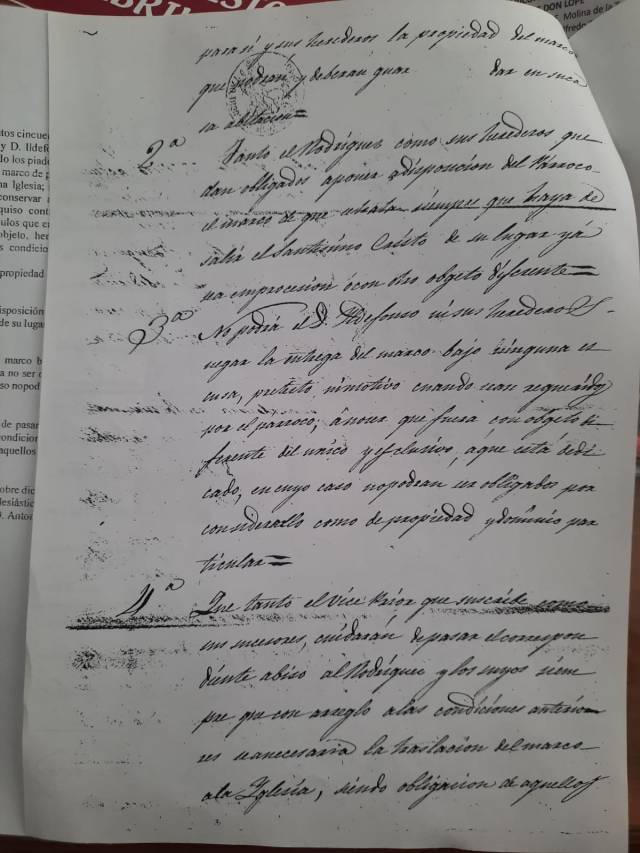 DON LOPE
Molina de la
para sí y sus herederos la propiedad del marco
que podrán y deberán guar dar en su ca
sa abitacion=
2ª Tanto el Rodriguez como sus herederos que
dan obligados aponer adisposicion del Párroco
el marco de que setrata siempre que haya de
salir el Santísimo Cristo de su lugar yá
sea enprocesion ócon otro objeto diferente=
3ª No podrá el D. Ildefonso nisus herederos
negar la entrega del marco bajo ninguna es
cusa, pretesto nimotivo cuando sean requeridos
por el parroco; ánoser que fuera con objeto di
ferente del unico y esclusivo, aque está dedi
cado, en cuyo caso nopodran ser obligados por
considerarlo como de propiedad ydominio par
ticular=
4ª Que tanto el Vice Prior que suscribe como
sus sucesores, cuidarán depasar el correspon
diente abiso al Rodriguez y los suyos siem
pre que con arreglo alas condiciones anterio
res seanecesaria la traslacion del marco
ala Yglesia, siendo obligacion de aquellos
tos cincue
y D. Ildef
lo los piad
marco de
na Iglesia;
conservar
quiso cont
ulos que
objeto, he
s condicio
propiedad
isposición
de su luga
marco b
a no ser
so nopod
de pasar
condicion
aquellos
obre dic
lesiástic
. Anto